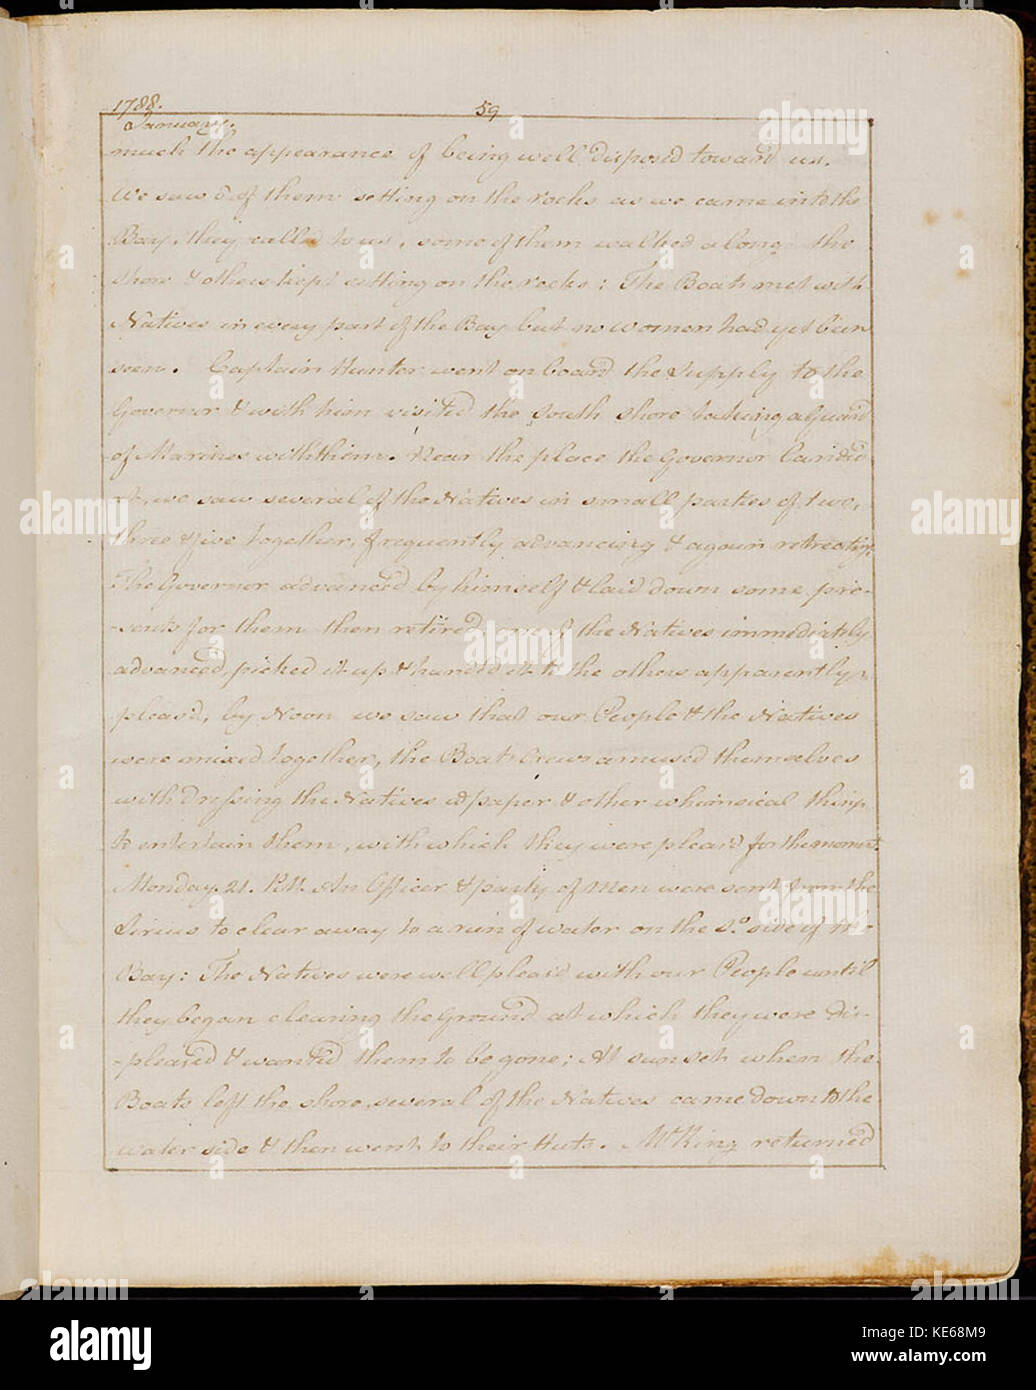 1788.
59
January.
much the appearance of being well disposed toward us.
We saw 8 of them setting on the rocks as we came into the
Bay, they call'd to us, some of them walked along the
shore & others kept setting on the rocks: The Boats met with
Natives in every part of the Bay but no women had yet been
seen. Captain Hunter went on board the Supply to the
Governor & with him visited the South shore taking a Guard
of Marines with them. Near the place the Governor landed
at, we saw several of the Natives in small parties of two,
three & five together, frequently advancing & again retreating.
The Governor advanced by himself & laid down some pre-
-sents for them then retired, one of the Natives immediately
advanced, picked it up & handed it to the others apparently
pleas'd, by Noon we saw that our People & the Natives
were mixed together, the Boats Crews amused themselves
with dressing the Natives wt. paper & other whimsical things
to entertain them, with which they were pleas'd for the moment.
Monday 21. P.M. An Officer & party of Men were sent from the
Sirius to clear away to a run of water on the So. side of the
Bay: The Natives were well pleas'd with our People until
they began clearing the Ground at which they were dis-
-pleased & wanted them to be gone; At sunset when the
Boats left the shore, several of the Natives came down to the
water side & then went to their Huts. Mr. King returned
alamy
a
alamy stock photo
KE68M9
www.alamy.com